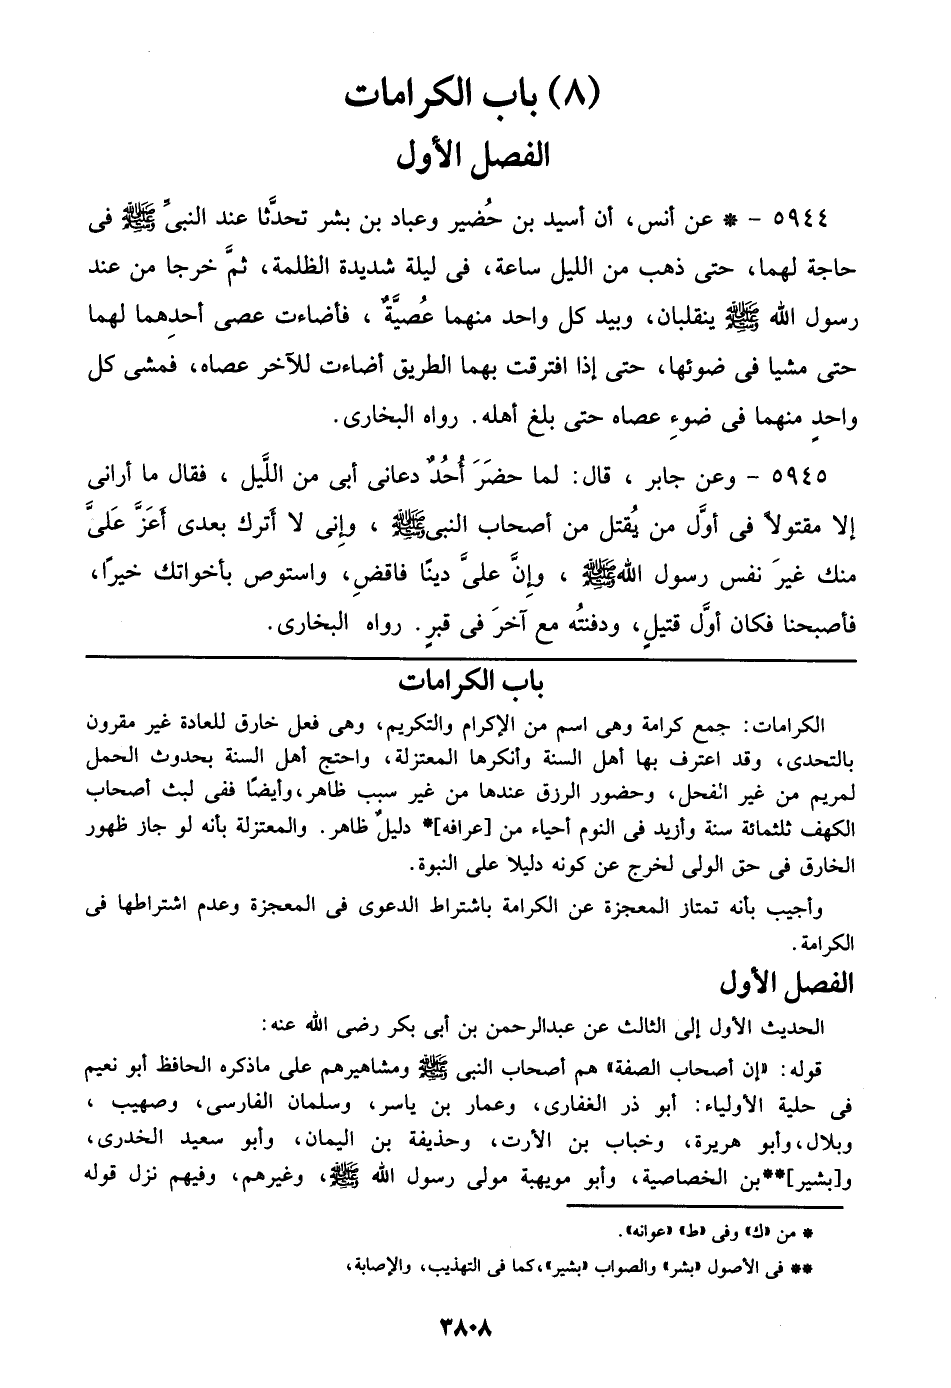 (٨) باب الكرامات
الفصل الأول
٥٩٤٤ - * عن أنس، أن أسيد بن حُضير وعباد بن بشر تحدَّثا عند النبىِّ ﷺ فى
حاجة لهما، حتى ذهب من الليل ساعة، فى ليلة شديدة الظلمة، ثمَّ خرجا من عند
رسول الله ﷺ ينقلبان، وبيد كل واحد منهما عُصيَّةٌ ، فأضاءت عصى أحدِهما لهما
حتى مشيا فى ضوئها، حتى إذا افترقت بهما الطريق أضاءت للآخر عصاه، فمشى كل
واحدٍ منهما فى ضوءِ عصاه حتى بلغ أهله. رواه البخارى.
٥٩٤٥ - وعن جابر ، قال: لما حضَرَ أُحُدٌ دعانى أبى من اللَّيل ، فقال ما أرانى
إلا مقتولاً فى أوَّل من يُقتل من أصحاب النبىﷺ ، وإِنى لا أَترك بعدى أَعَزَّ عَلىَّ
منك غيرَ نفس رسول اللهﷺ ، وإِنَّ علىَّ دينًا فاقضِ، واستوص بأخواتك خيرًا،
فأصبحنا فكان أوَّل قتيلٍ، ودفنتُه مع آخرَ فى قبرٍ. رواه البخارى.
باب الكرامات
الكرامات: جمع كرامة وهى اسم من الإكرام والتكريم، وهى فعل خارق للعادة غير مقرون
بالتحدى، وقد اعترف بها أهل السنة وأنكرها المعتزلة، واحتج أهل السنة بحدوث الحمل
لمريم من غير الفحل، وحضور الرزق عندها من غير سبب ظاهر،وأيضًا ففى لبث أصحاب
الكهف ثلثمائة سنة وأزيد فى النوم أحياء من [عرافه]* دليلٌ ظاهر. والمعتزلة بأنه لو جاز ظهور
الخارق فى حق الولى لخرج عن كونه دليلا على النبوة.
وأجيب بأنه تمتاز المعجزة عن الكرامة باشتراط الدعوى فى المعجزة وعدم اشتراطها فى
الكرامة.
الفصل الأول
الحديث الأول إلى الثالث عن عبدالرحمن بن أبى بكر رضى الله عنه:
قوله: «إن أصحاب الصفة» هم أصحاب النبى ﷺ ومشاهيرهم على ماذكره الحافظ أبو نعيم
فى حلية الأولياء: أبو ذر الغفارى، وعمار بن ياسر، وسلمان الفارسى، وصهيب ،
وبلال،وأبو هريرة، وخباب بن الأرت، وحذيفة بن اليمان، وأبو سعيد الخدرى،
و[بشير]**بن الخصاصية، وأبو مويهبة مولى رسول الله ﷺ، وغيرهم، وفيهم نزل قوله
* من «ك» وفى «ط» «عوانه».
** فى الأصول «بشر» والصواب «بشير»،كما فى التهذيب، والإصابة،
٣٨٠٨